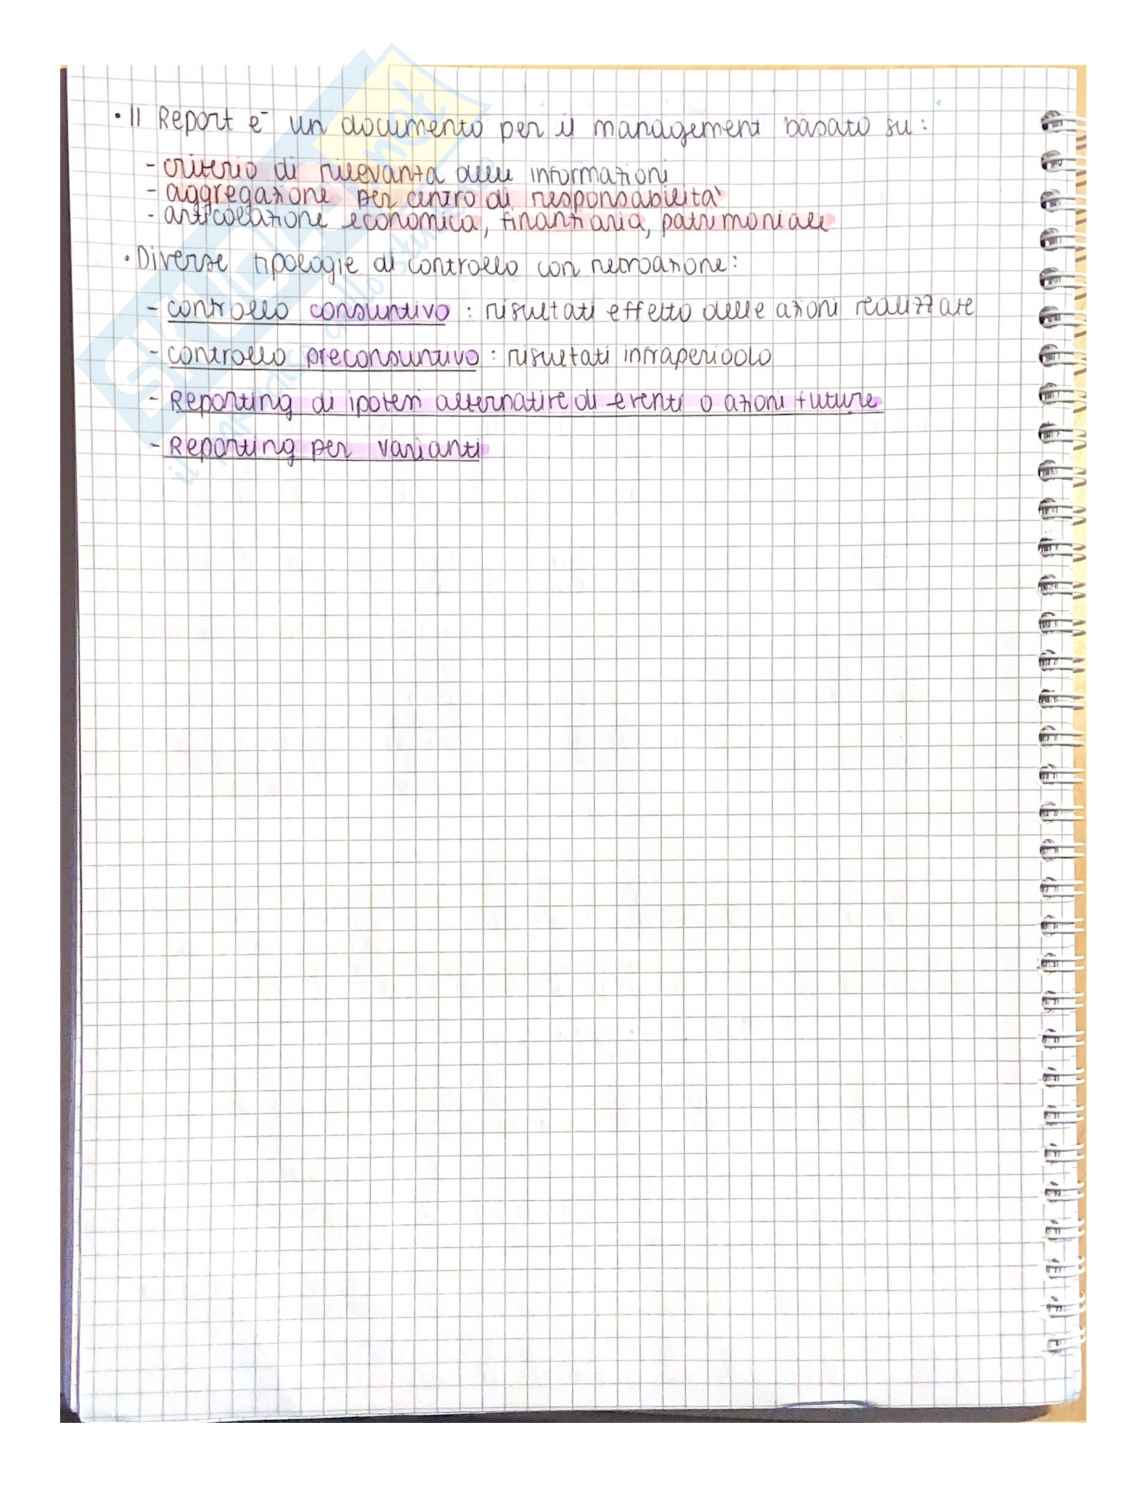 • Il Report è un documento per il management basato su:
- criterio di rilevanza delle informazioni
- aggregazione per centro di responsabilità
- articolazione economica, finanziaria, patrimoniale
• Diverse tipologie di controllo con retroazione:
- controllo consuntivo : risultati effetto delle azioni realizzate
- controllo preconsuntivo : risultati infraperiodo
- Reporting di ipotesi alternative di eventi o azioni future
- Reporting per varianti